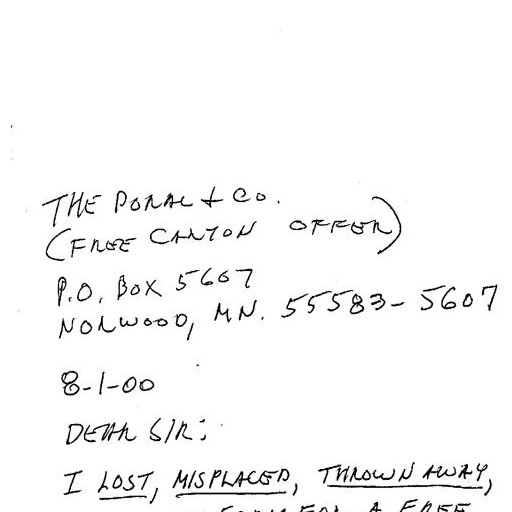 THE DORAL & CO.
(FREE CARTON OFFER)
P.O. BOX 5607
NORWOOD, MN. 55583-5607
8-1-00
DEAR SIR:
I LOST, MISPLACED, THROWN AWAY,
FOR A FREE